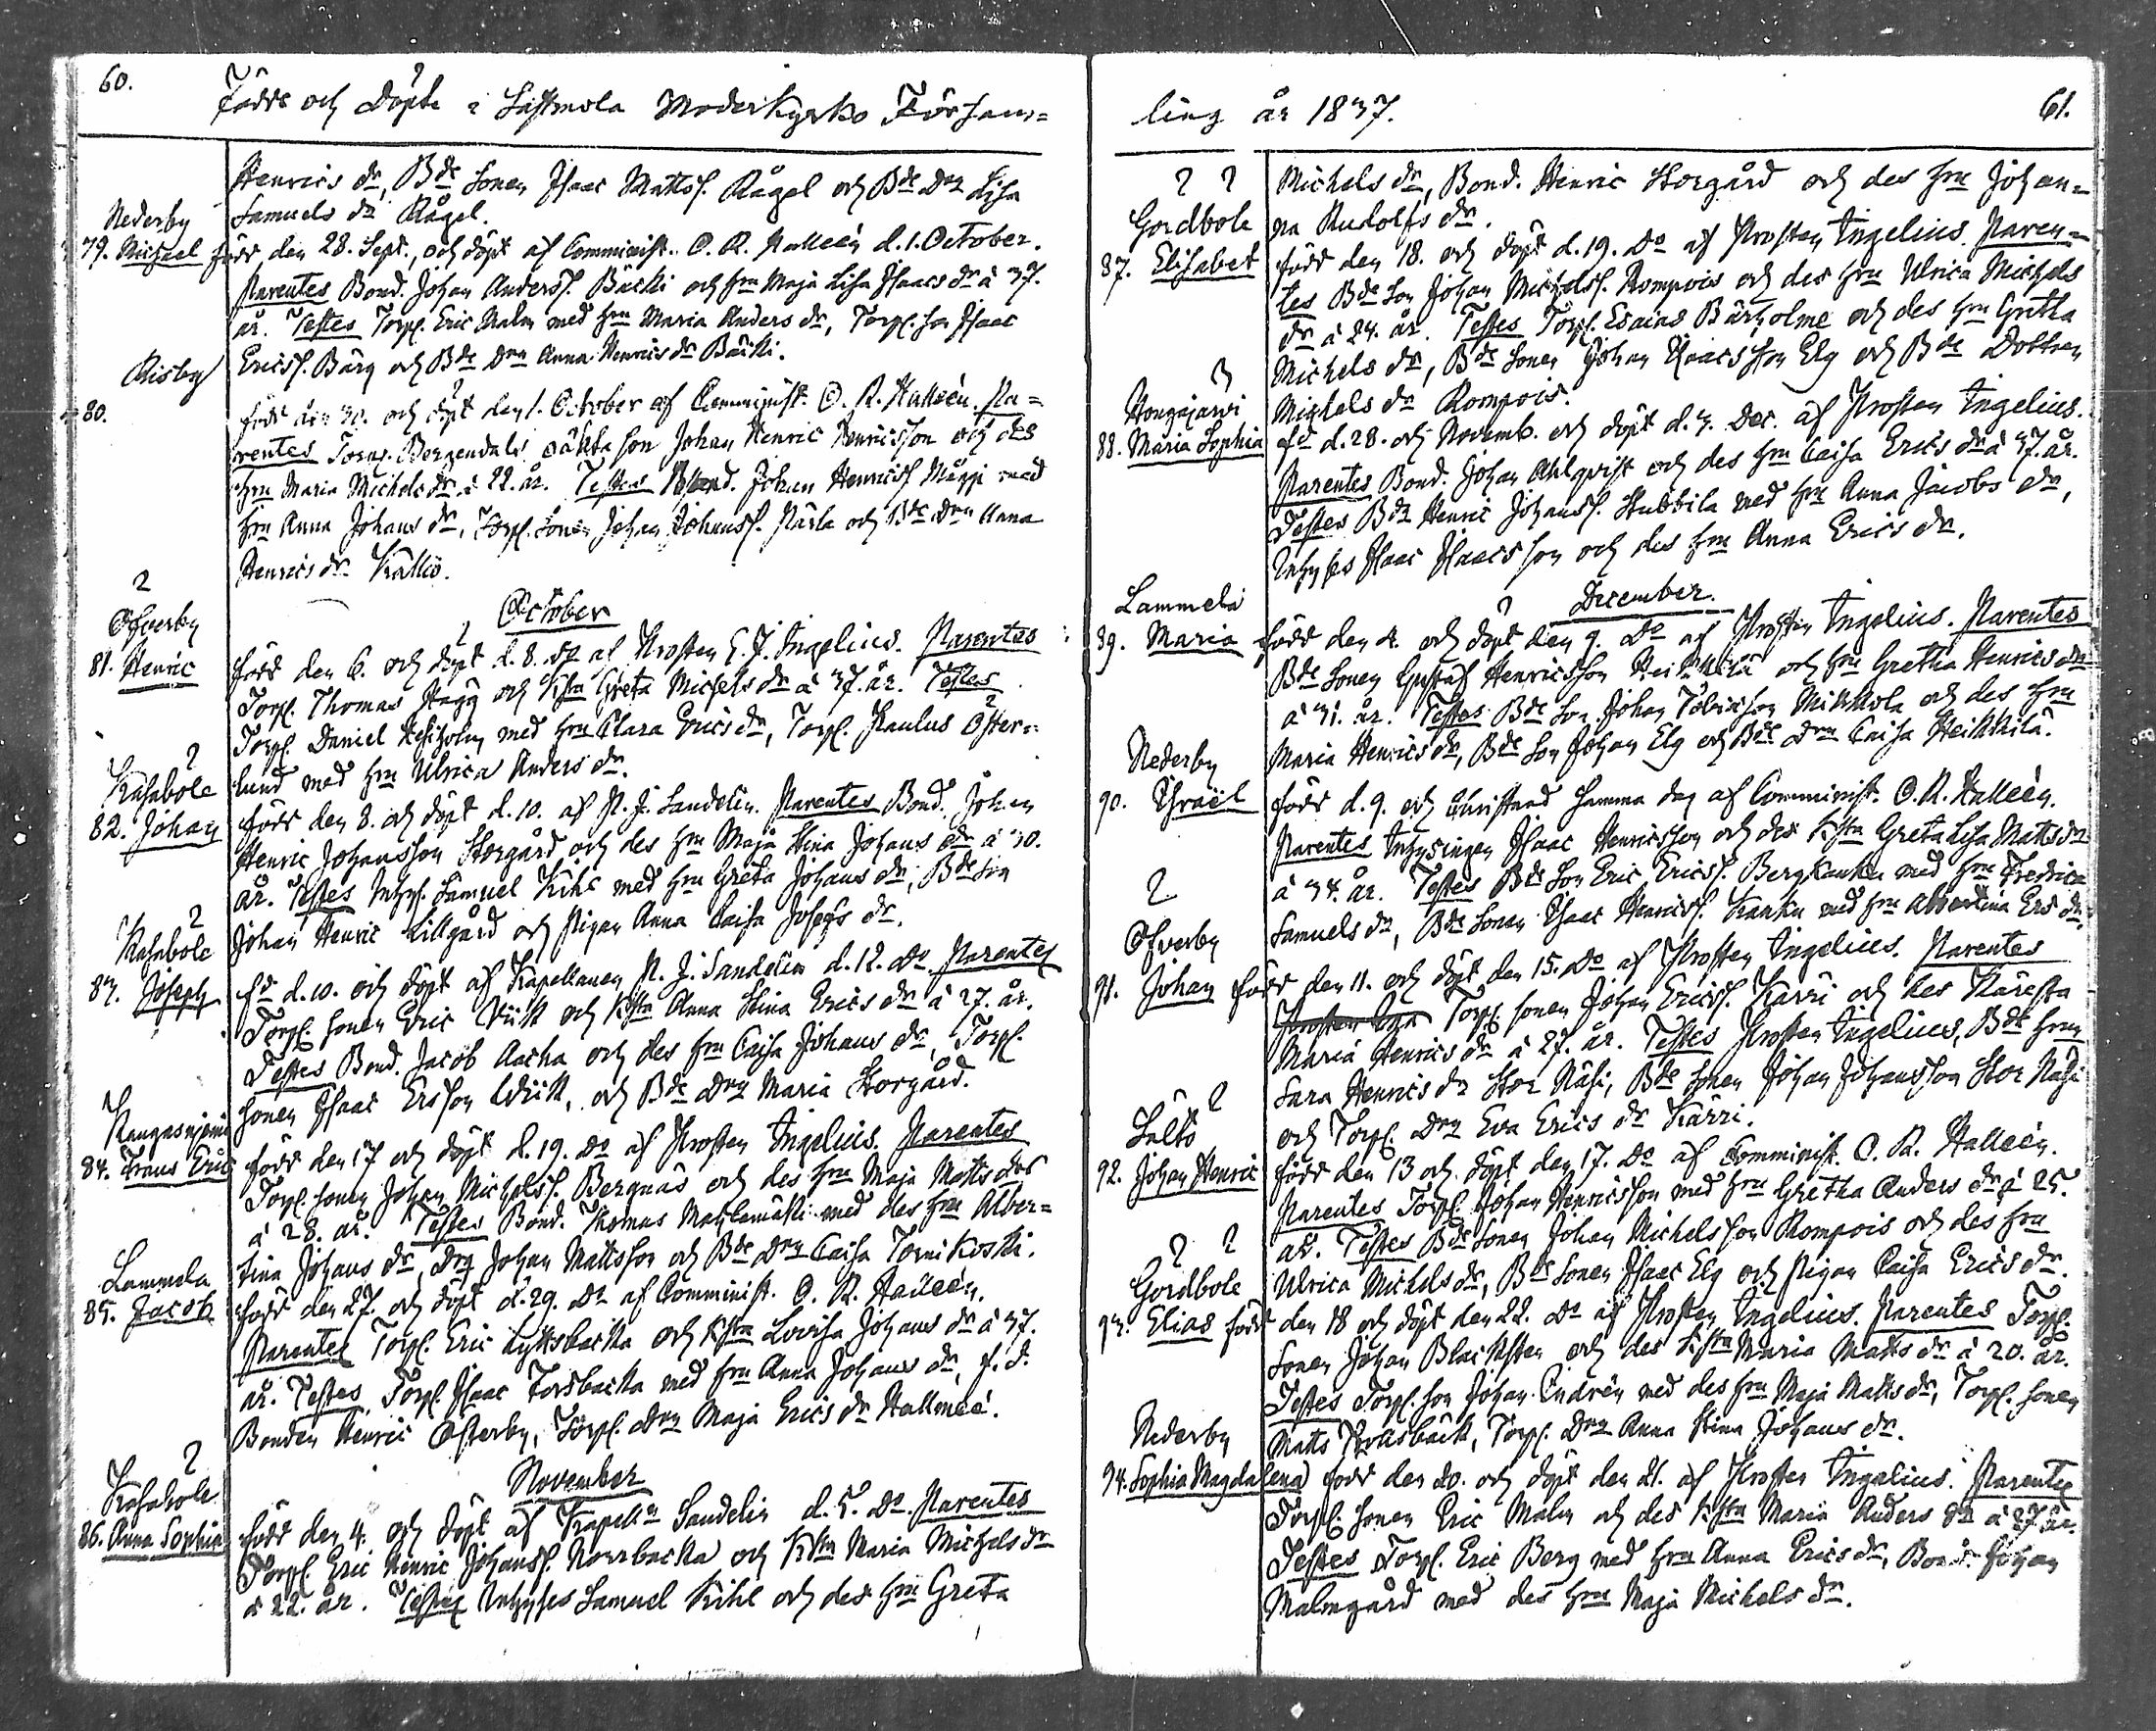 60.
Födde och Döpte i Sastmola Moderkyrko Försam=
Henrics dr, Bde Sonen Isaac Mattss. Rågel och Bde Drn Lisa
Nederby Samuels dr Rågel.
79. Michael född den 28. Sept., och döpt af Comminist. O. R. Halleén d. 1. October.
Parentes Bond. Johan Anderss. Bäcki och Hru Maja Lisa Isaacs dr à 37.
år. Testes Torp. Eric Malm med Hru Maria Anders dr, Torp. son Isaac
Risby Ericss. Bärg och Bde Drn Anna Henrics dr Bäcki.
80. född den 30. och döpt den 1. October af Comminist. O. R. Halleén. Pa=
rentes Torp. Bergendals oäkta son Johan Henric Henricsson och des
Hru Maria Michels dr à 22. år. Testes Bond. Johan Henricss. med
Hru Anna Johans dr, Torp. Sonen Johan Johanss. Pärla och Bde Drn Anna
Henrics dr Källiö.
October
Öfverby
81. Henric född den 6. och döpt d. 8. do af Prosten E. J. Ingelius. Parentes
Torp. Thomas Hägg och Hstru Greta Michels dr à 37. år. Testes
Torp. Daniel med Hru Clara Erics dr, Torp. Paulus Öster=
lund med Hru Ulrica Anders dr.
Kasabole
82. Johan född den 8. och döpt d. 10. af N. J. Sandelin. Parentes Bond. Johan
Henric Johansson Storgård och des Hru Maja Stina Johans dr à 30.
år. Testes Inhys. Samuel Kihl med Hru Greta Johans dr, Bde son
Johan Henric Lillgård och Pigan Anna Caisa Josephs dr.
Kasabole
83. Joseph fd d. 10. och döpt af Kapellanen N. J. Sandelin d. 12. do Parentes
Torp. sonen Eric Wiik och Hstru Anna Stina Erics dr à 27. år.
Testes Bond. Jacob Aacka och des Hru Caisa Johans dr, Torp.
sonen Isaac Ersson Wiik, och Bde Drn Maria Storgård.
Kangasniemi
84. Frans Eric född den 17 och döpt d. 19. do af Prosten Ingelius. Parentes
Torp. sonen Johan Michelss. Bergnäs och des Hru Maja Matts dr
à 28. år. Testes Bond. Thomas med des Hru Alber=
tina Johans dr, Drg Johan Mattsson och Bde Drn Caisa Tornikoski.
Lammela
85. Jacob född den 27. och döpt d. 29. do af Comminist. O. R. Halleén.
Parentes Torp. Eric Lyttsbacka och Hstru Lovisa Johans dr à 37.
år. Testes, Torp. Isaac Forsbacka med Hru Anna Johans dr, f.d.
Bonden Henric Österby, Torp. Drn Maja Erics dr Hallmeé.
November
Kasabole
86. Anna Sophia född den 4. och döpt af Kapelln Sandelin d. 5. do Parentes
Torp. Eric Henric Johanss. Norrbacka och Hstru Maria Michels dr
à 22. år. Testes Inhyses Samuel Kihl och des Hru Greta
ling år 1837.
61.
Michels dr, Bond. Henric Storgård och des Hru Johan=
Gordbole na Rudolfs dr.
87. Elisabet född den 18. och döpt d. 19. do af Prosten Ingelius. Paren=
tes Bde son Johan Michelss. Rompois och des Hru Ulrica Michels
dr à 24. år. Testes Torp. Esaias Bärholme och des Hru Gretha
Michels dr, Bde Sonen Johan Isaacsson Elg och Bde Dottren
Hongajärvi Michels dr Rompois.
88. Maria Sophia fd d. 28. och Novemb. och döpt d. 3. Dec. af Prosten Ingelius.
Parentes Bond. Johan Ahlqvist och des Hru Caisa Erics dr à 37. år.
Testes Bdn Henric Johanss. Stubbila med Hru Anna Jacobs dr,
Inhyses Isaac Isaacsson och des Hru Anna Erics dr.
December.
Lammela
89. Maria född den 4. och döpt den 9. do af Prosten Ingelius. Parentes
Bde Sonen Gustaf Henricsson Heikkilä och Hru Gretha Henrics dr
à 31. år. Testes Bde son Johan Tobiasson Mikkola och des Hru
Maria Henrics dr, Bde son Johan Elg och Bde Drn Caisa Heikkilä.
Nederby
90. Israël född d. 9. och Christnad samma dag af Comminist. O. R. Halleén.
Parentes Inhysingen Isaac Henricsson och des Hstru Greta Lisa Matts dr
à 34. år. Testes Bde son Eric Ericss. Bergkanku med Hru Fredrica
Samuels dr, Bde sonen Isaac Henricss. Kanku med Hru Albertina Ers dr.
Öfverby
91. Johan född den 11. och döpt den 15. do af Prosten Ingelius. Parentes
Torp. sonen Johan Ericss. Karri och des Käresta
Maria Henrics dr à 27. år. Testes Prosten Ingelius, Bde Hrun
Sara Henrics dr Stor Näsi, Bde sonen Johan Johansson Stor Näsi
och Torp. Drn Eva Erics dr Kärri.
Saltö
92. Johan Henric född den 13 och döpt den 17. do af Comminist. O. R. Halleén.
Parentes Torp. Johan Henricsson med Hru Gretha Anders dr à 25.
år. Testes Bde sonen Johan Michelsson Rompois och des Hru
Ulrica Michels dr, Bde sonen Isaac Elg och Pigan Caisa Erics dr.
Gordbole
93. Elias född den 18 och döpt den 22. do af Prosten Ingelius. Parentes Torp.
sonen Johan Blacksten och des Hstru Maria Matts dr à 20. år.
Testes Torp. son Johan Endrén med des Hru Maja Matts dr, Torp. sonen
Nederby Matts Torp. Drn Anna Stina Johans dr.
94. Sophia Magdalena född den 20. och döpt den 21. af Prosten Ingelius. Parentes
Torp. sonen Eric Malm och des Hstru Maria Anders dr à 27 år.
Testes Torp. Eric Berg med Hru Anna Erics dr, Bond. Johan
Malmgård med des Hru Maja Michels dr.